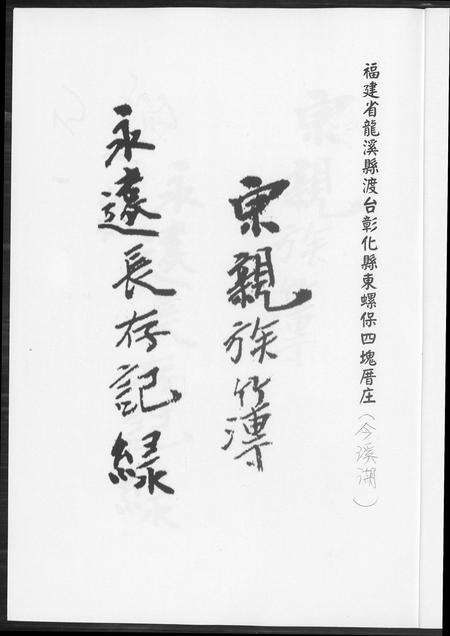 福建省龍溪縣渡台彰化縣東螺保四塊厝庄(今溪湖)
宗親族竹溥
永遠長存記綠